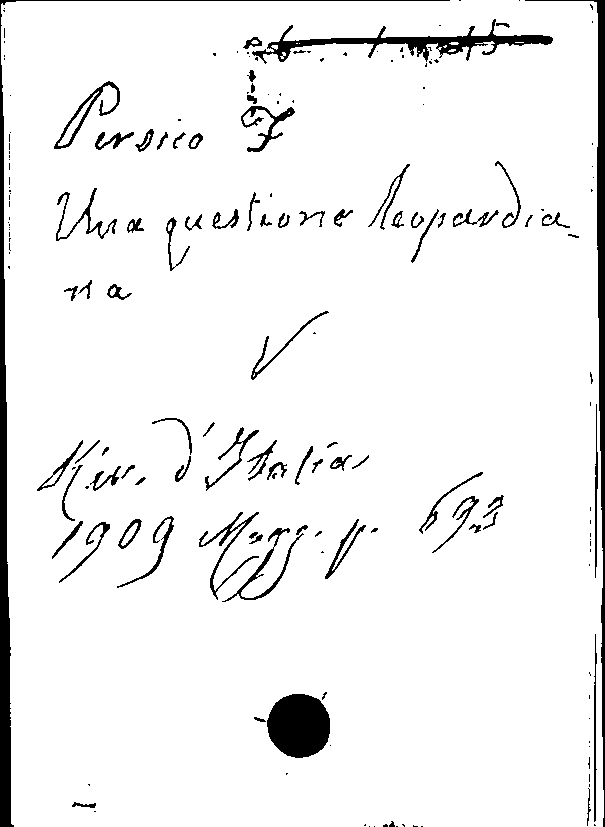 Persico F
Una questione leopardia-
na
V
Riv. d'Italia
1909 Magg. p. 693